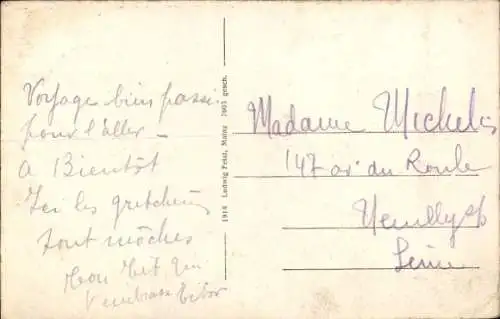 Voyage bien passé
pour l'aller -
A Bientôt
Ici les gretchens
sont môches
Mon
1914 Ludwig Feist, Mainz 7005 gesch.
Madame Michelis
147 av. du Roule
Neuilly s/
Seine